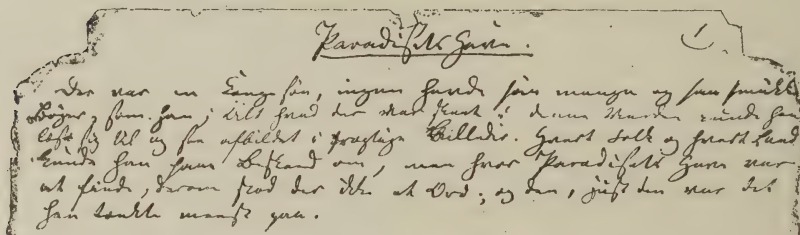 Paradisets Have. 1
Der var en Kongesøn, ingen havde saa mange og saa smukke
Bøger, som han; Alt hvad der var skeet i denne Verden kunde han
læse sig til og see afbildet i prægtige Billeder. Hvert Folk og hvert Land
kunde han faae Besked om, men hvor Paradisets Have var
at finde, derom stod der ikke et Ord; og den, just den var det
han tænkte meest paa.